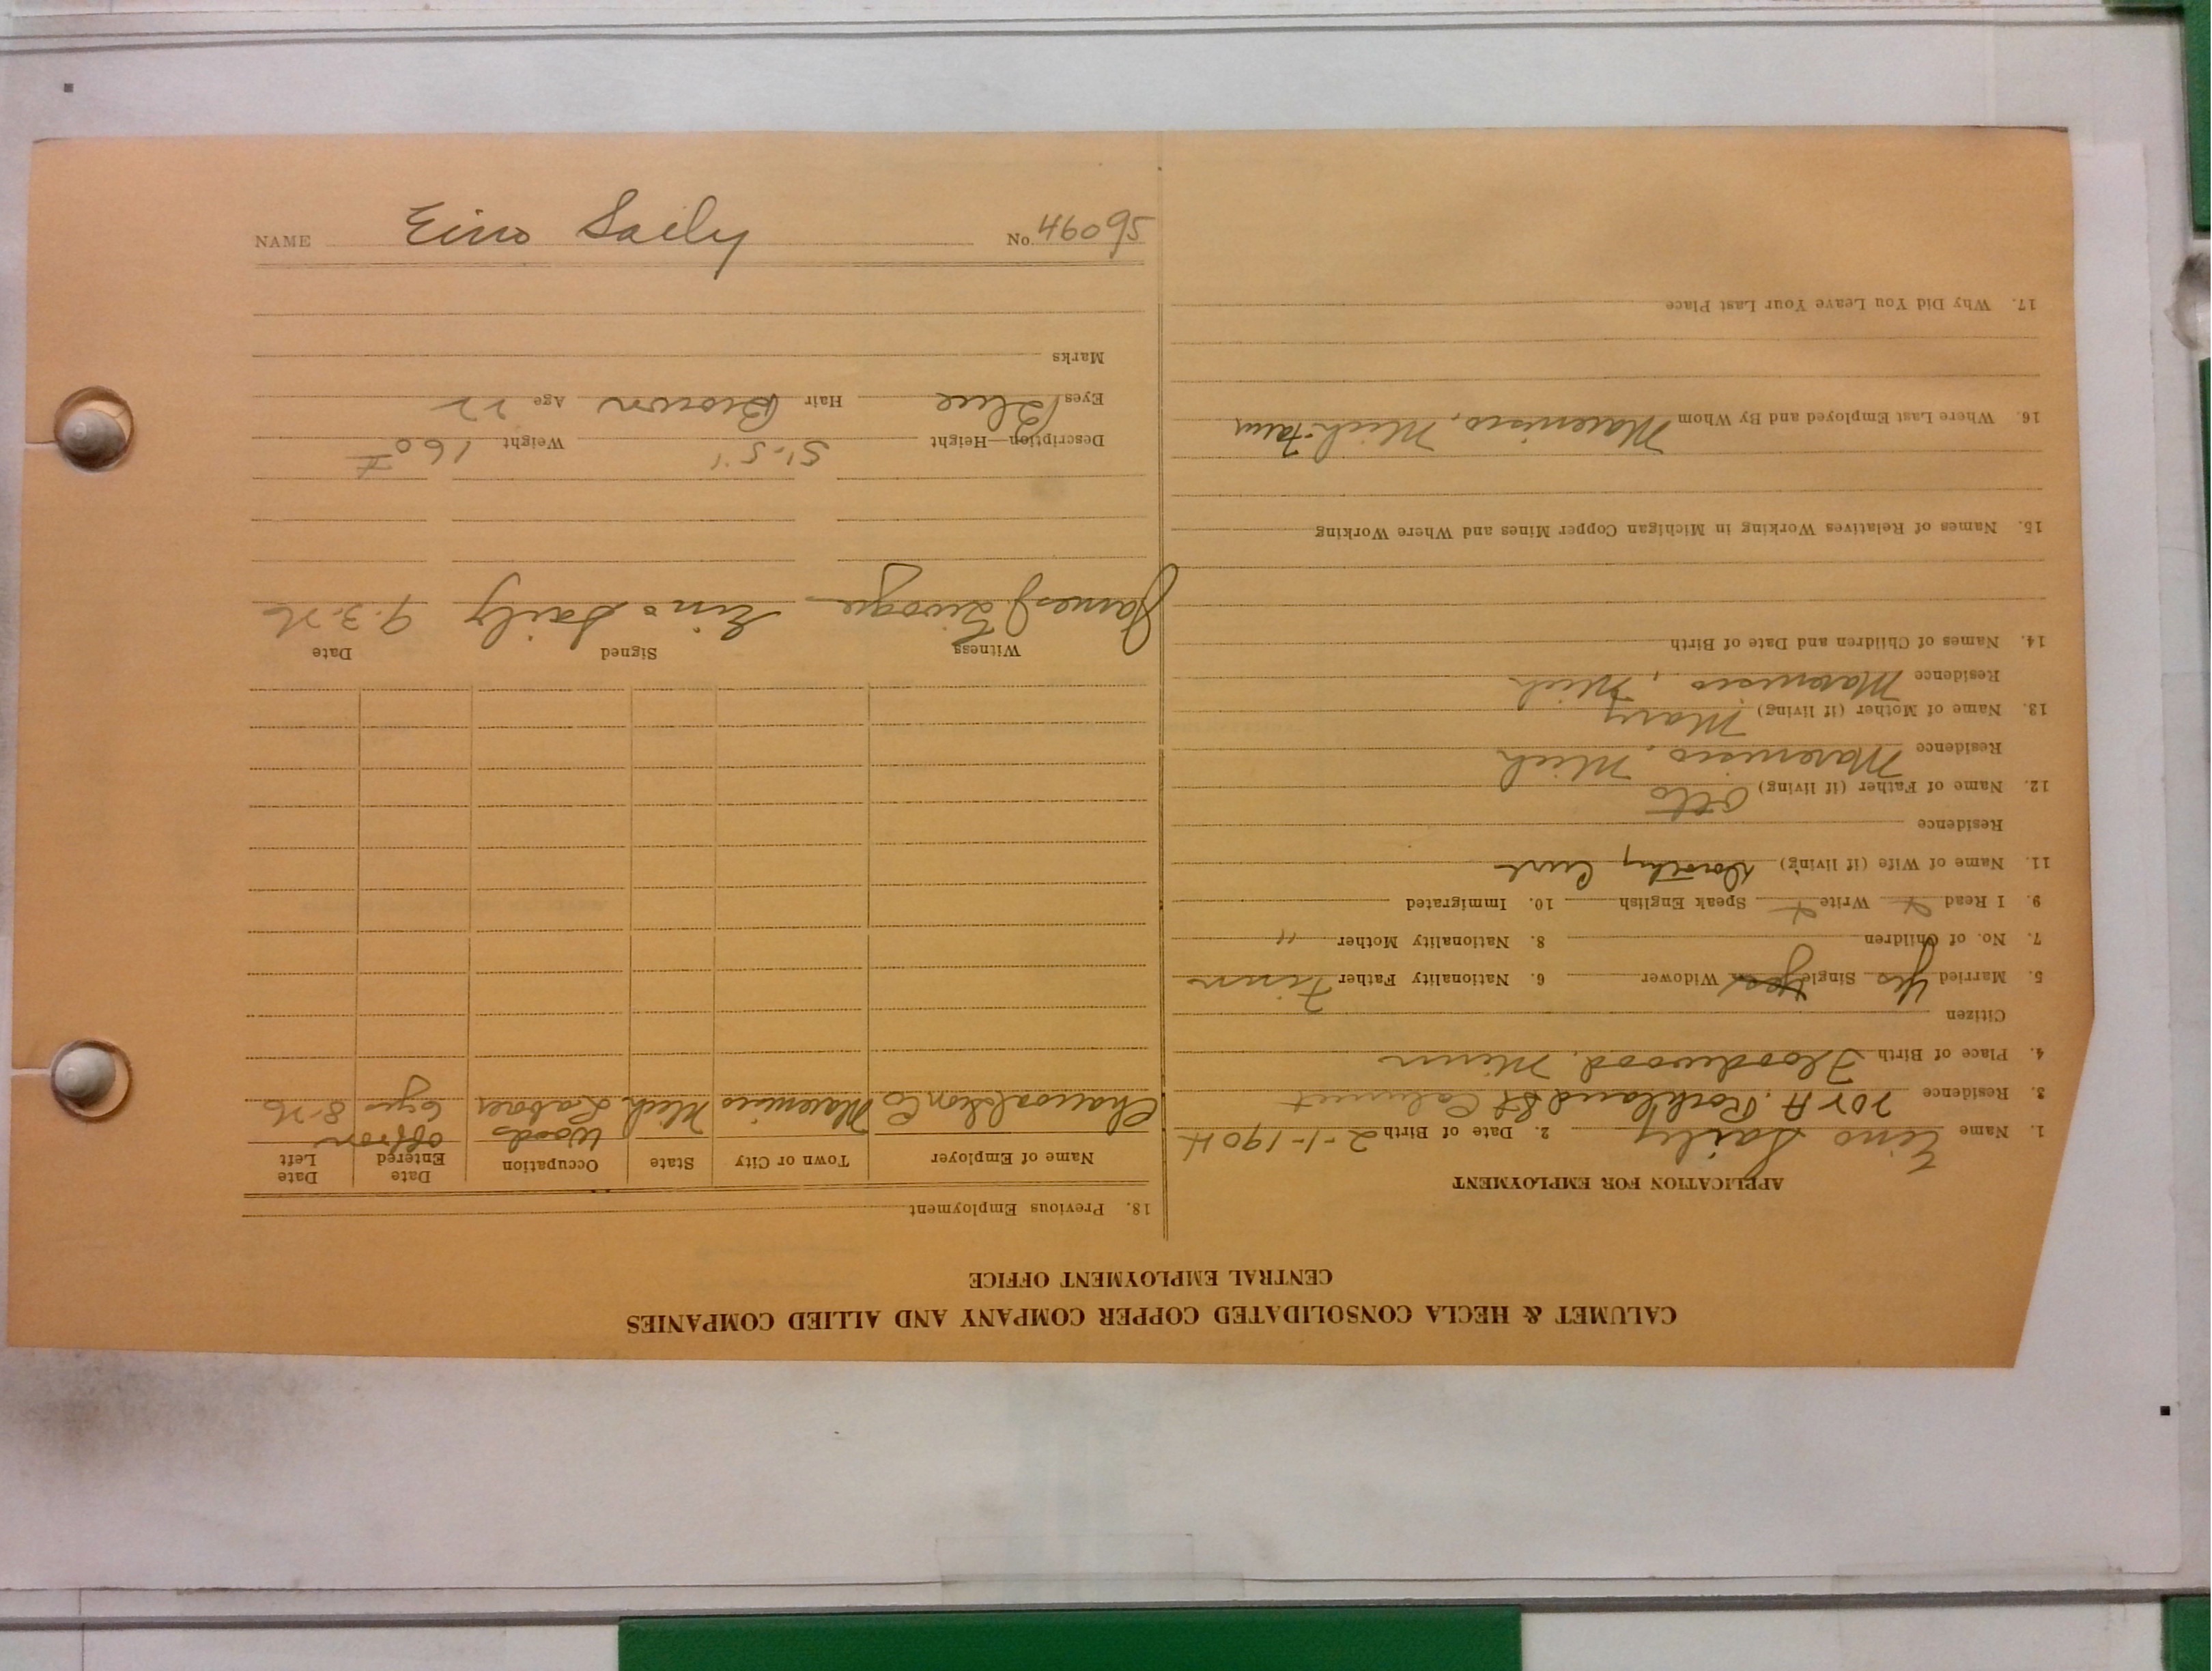 NAME Eino Saily No. 46095
CALUMET & HECLA CONSOLIDATED COPPER COMPANY AND ALLIED COMPANIES
CENTRAL EMPLOYMENT OFFICE
APPLICATION FOR EMPLOYMENT
1. Name Eino Saily 2. Date of Birth 2-1-1904
3. Residence 202 A. Rockland St Calumet
4. Place of Birth Floodwood, Minn
Citizen
5. Married Yes Single Yes Widower 6. Nationality Father Finn
7. No. of Children 8. Nationality Mother "
9. I Read Write Speak English 10. Immigrated
11. Name of Wife (if living) Dorothy
Residence
12. Name of Father (if living) Otto
Residence Marenisco, Mich
13. Name of Mother (if living) Mary
Residence Marenisco, Mich
14. Names of Children and Date of Birth
15. Names of Relatives Working in Michigan Copper Mines and Where Working
16. Where Last Employed and By Whom Marenisco, Mich-Farm
17. Why Did You Leave Your Last Place
18. Previous Employment
Name of Employer Town or City State Occupation Date Entered Date Left
Woods off & on
Co Marenisco Mich Laborer 6 yrs 8-26
Witness Signed Date
James J. Eino Saily 9-3-26
Description—Height 5'-5" Weight 160 #
Eyes Blue Hair Brown Age 22
Marks